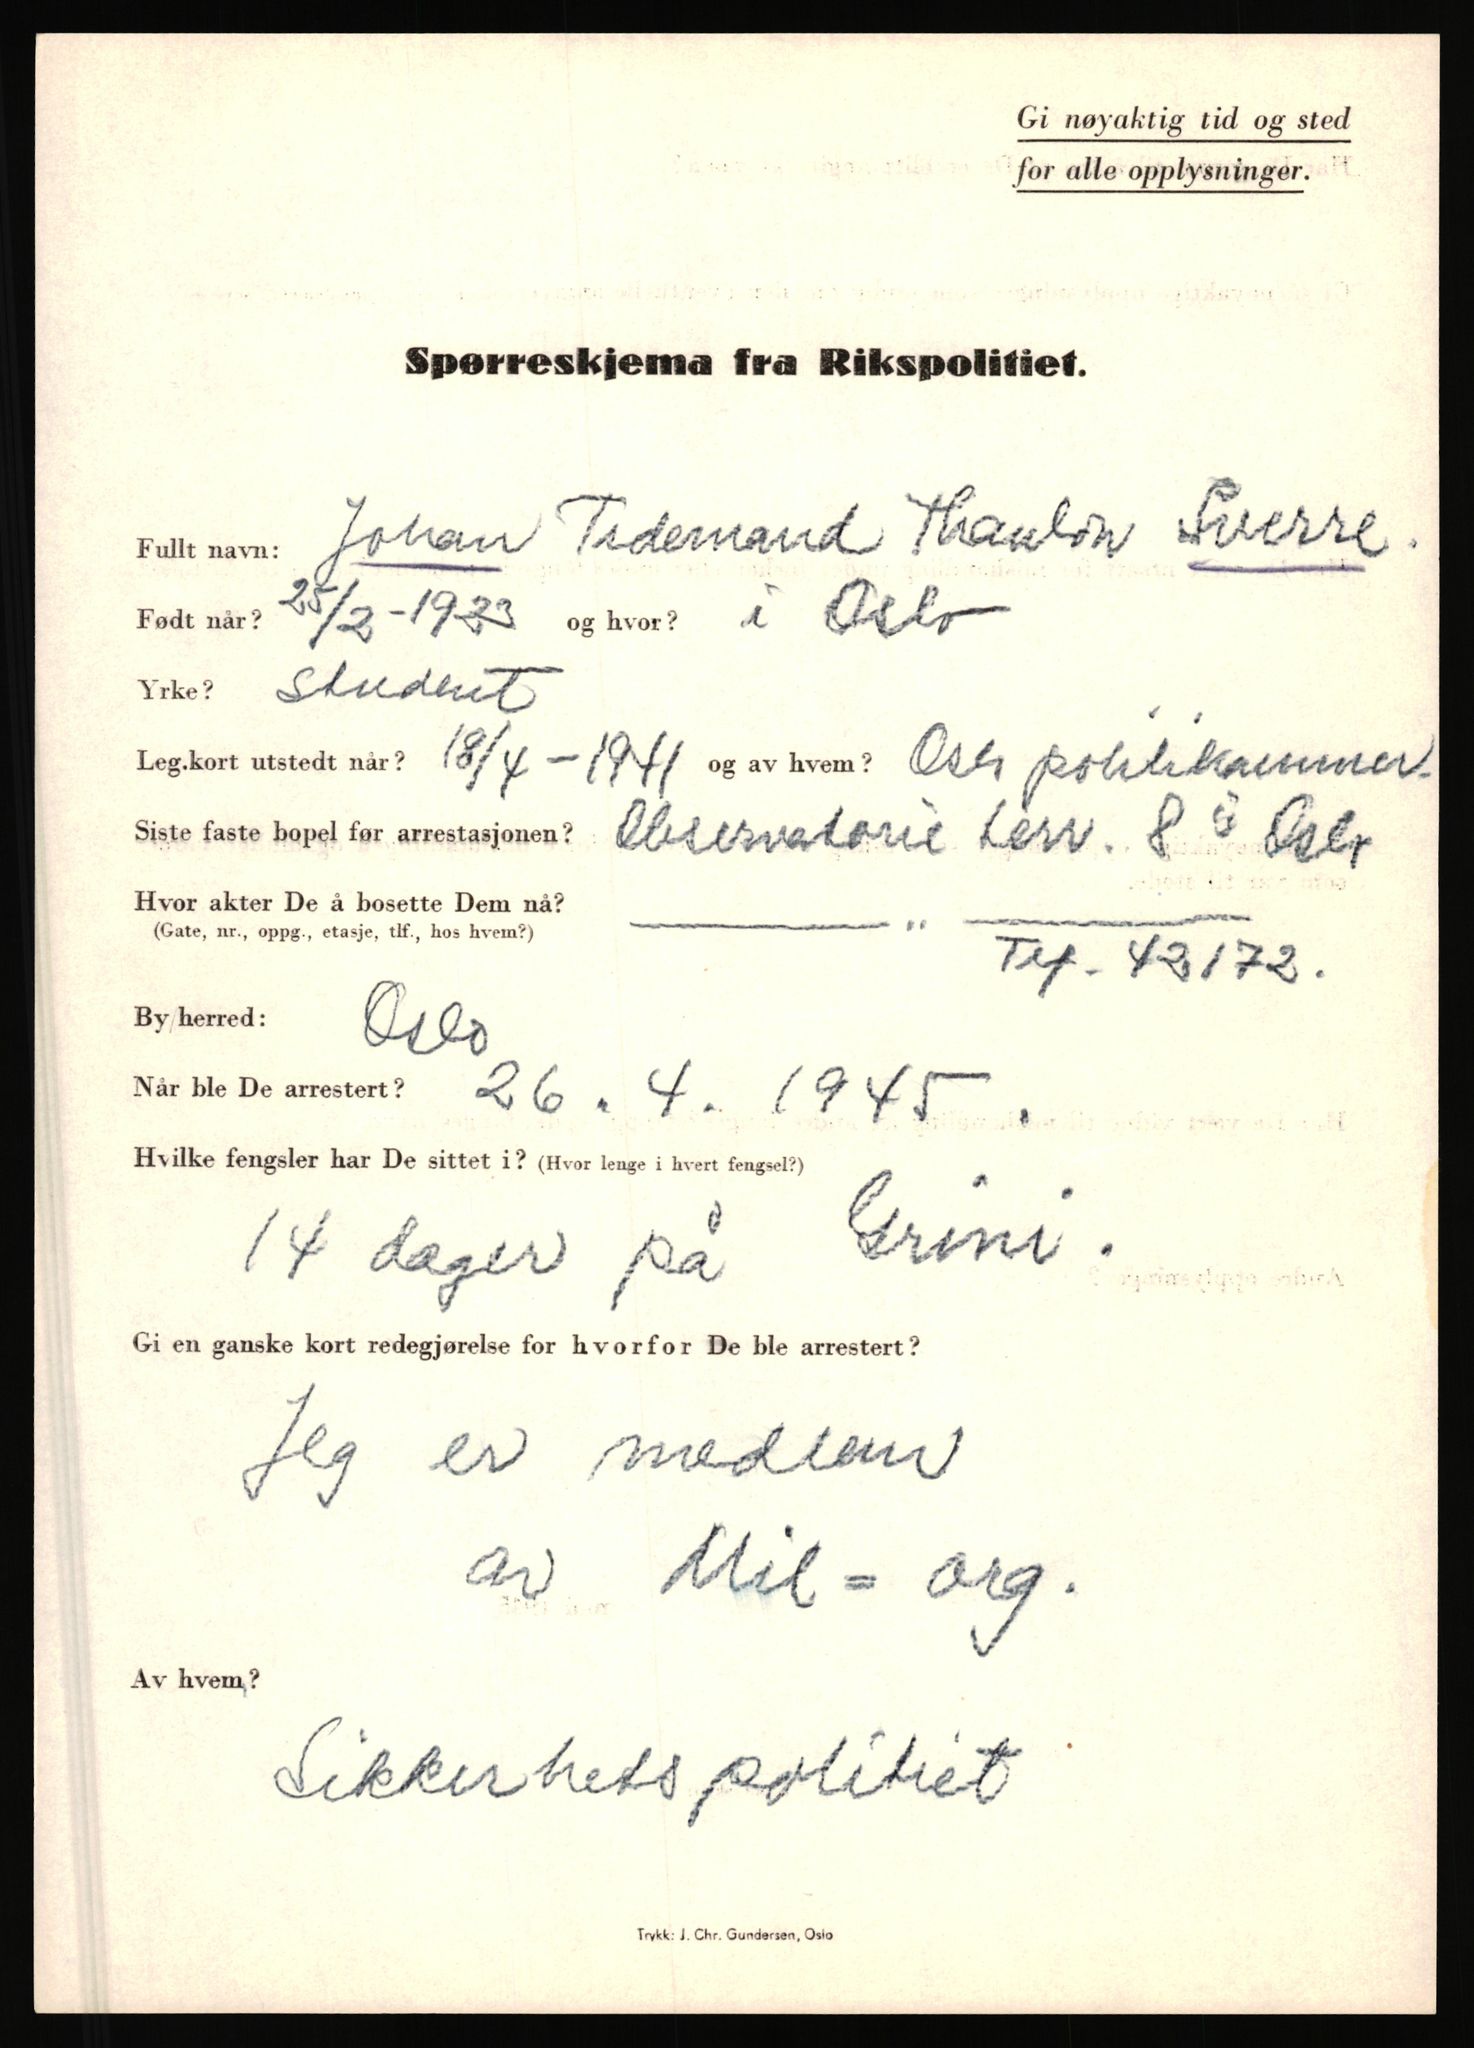 Gi nøyaktig tid og sted
for alle opplysninger.
Spørreskjema fra Rikspolitiet.
Fullt navn: Johan Tidemand Thaulow Sverre.
Født når? 25/2-1923 og hvor? i Oslo
Yrke? student
Leg.kort utstedt når? 18/4-1941 og av hvem? Oslo politikammer.
Siste faste bopel før arrestasjonen? Observatorie terr. 8 Oslo
Hvor akter De å bosette Dem nå? — " —
(Gate, nr., oppg., etasje, tlf., hos hvem?) Tlf. 42172.
By/herred: Oslo
Når ble De arrestert? 26. 4. 1945.
Hvilke fengsler har De sittet i? (Hvor lenge i hvert fengsel?)
14 dager på Grini.
Gi en ganske kort redegjørelse for hvorfor De ble arrestert?
Jeg er medlem
av Mil=org.
Av hvem?
Sikkerhetspolitiet
Trykk: J. Chr. Gundersen, Oslo